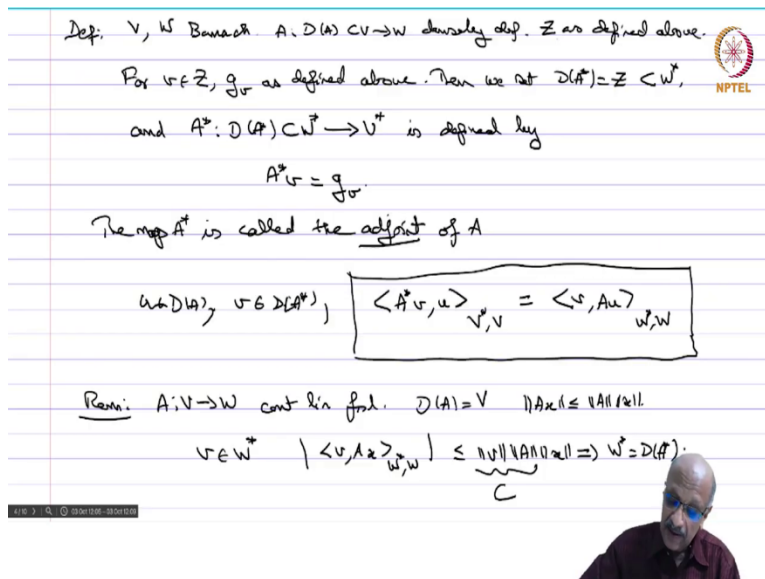 Def: V, W Banach. A: D(A) ⊂ V → W densely def. Z as defined above.
NPTEL
For v ∈ Z, g_v as defined above. Then we set D(A*) = Z ⊂ W*,
and A*: D(A*) ⊂ W* → V* is defined by
A*v = g_v.
The map A* is called the adjoint of A
u ∈ D(A), v ∈ D(A*), <A*v, u>_{V*,V} = <v, Au>_{W*,W}
Rem: A: V → W cont lin fnl. D(A) = V ||Ax|| ≤ ||A|| ||x||.
v ∈ W* |<v, Ax>_{W*,W}| ≤ ||v|| ||A|| ||x|| ⇒ W* = D(A*).
C
4/10 03 Oct 12:06 - 03 Oct 12:09